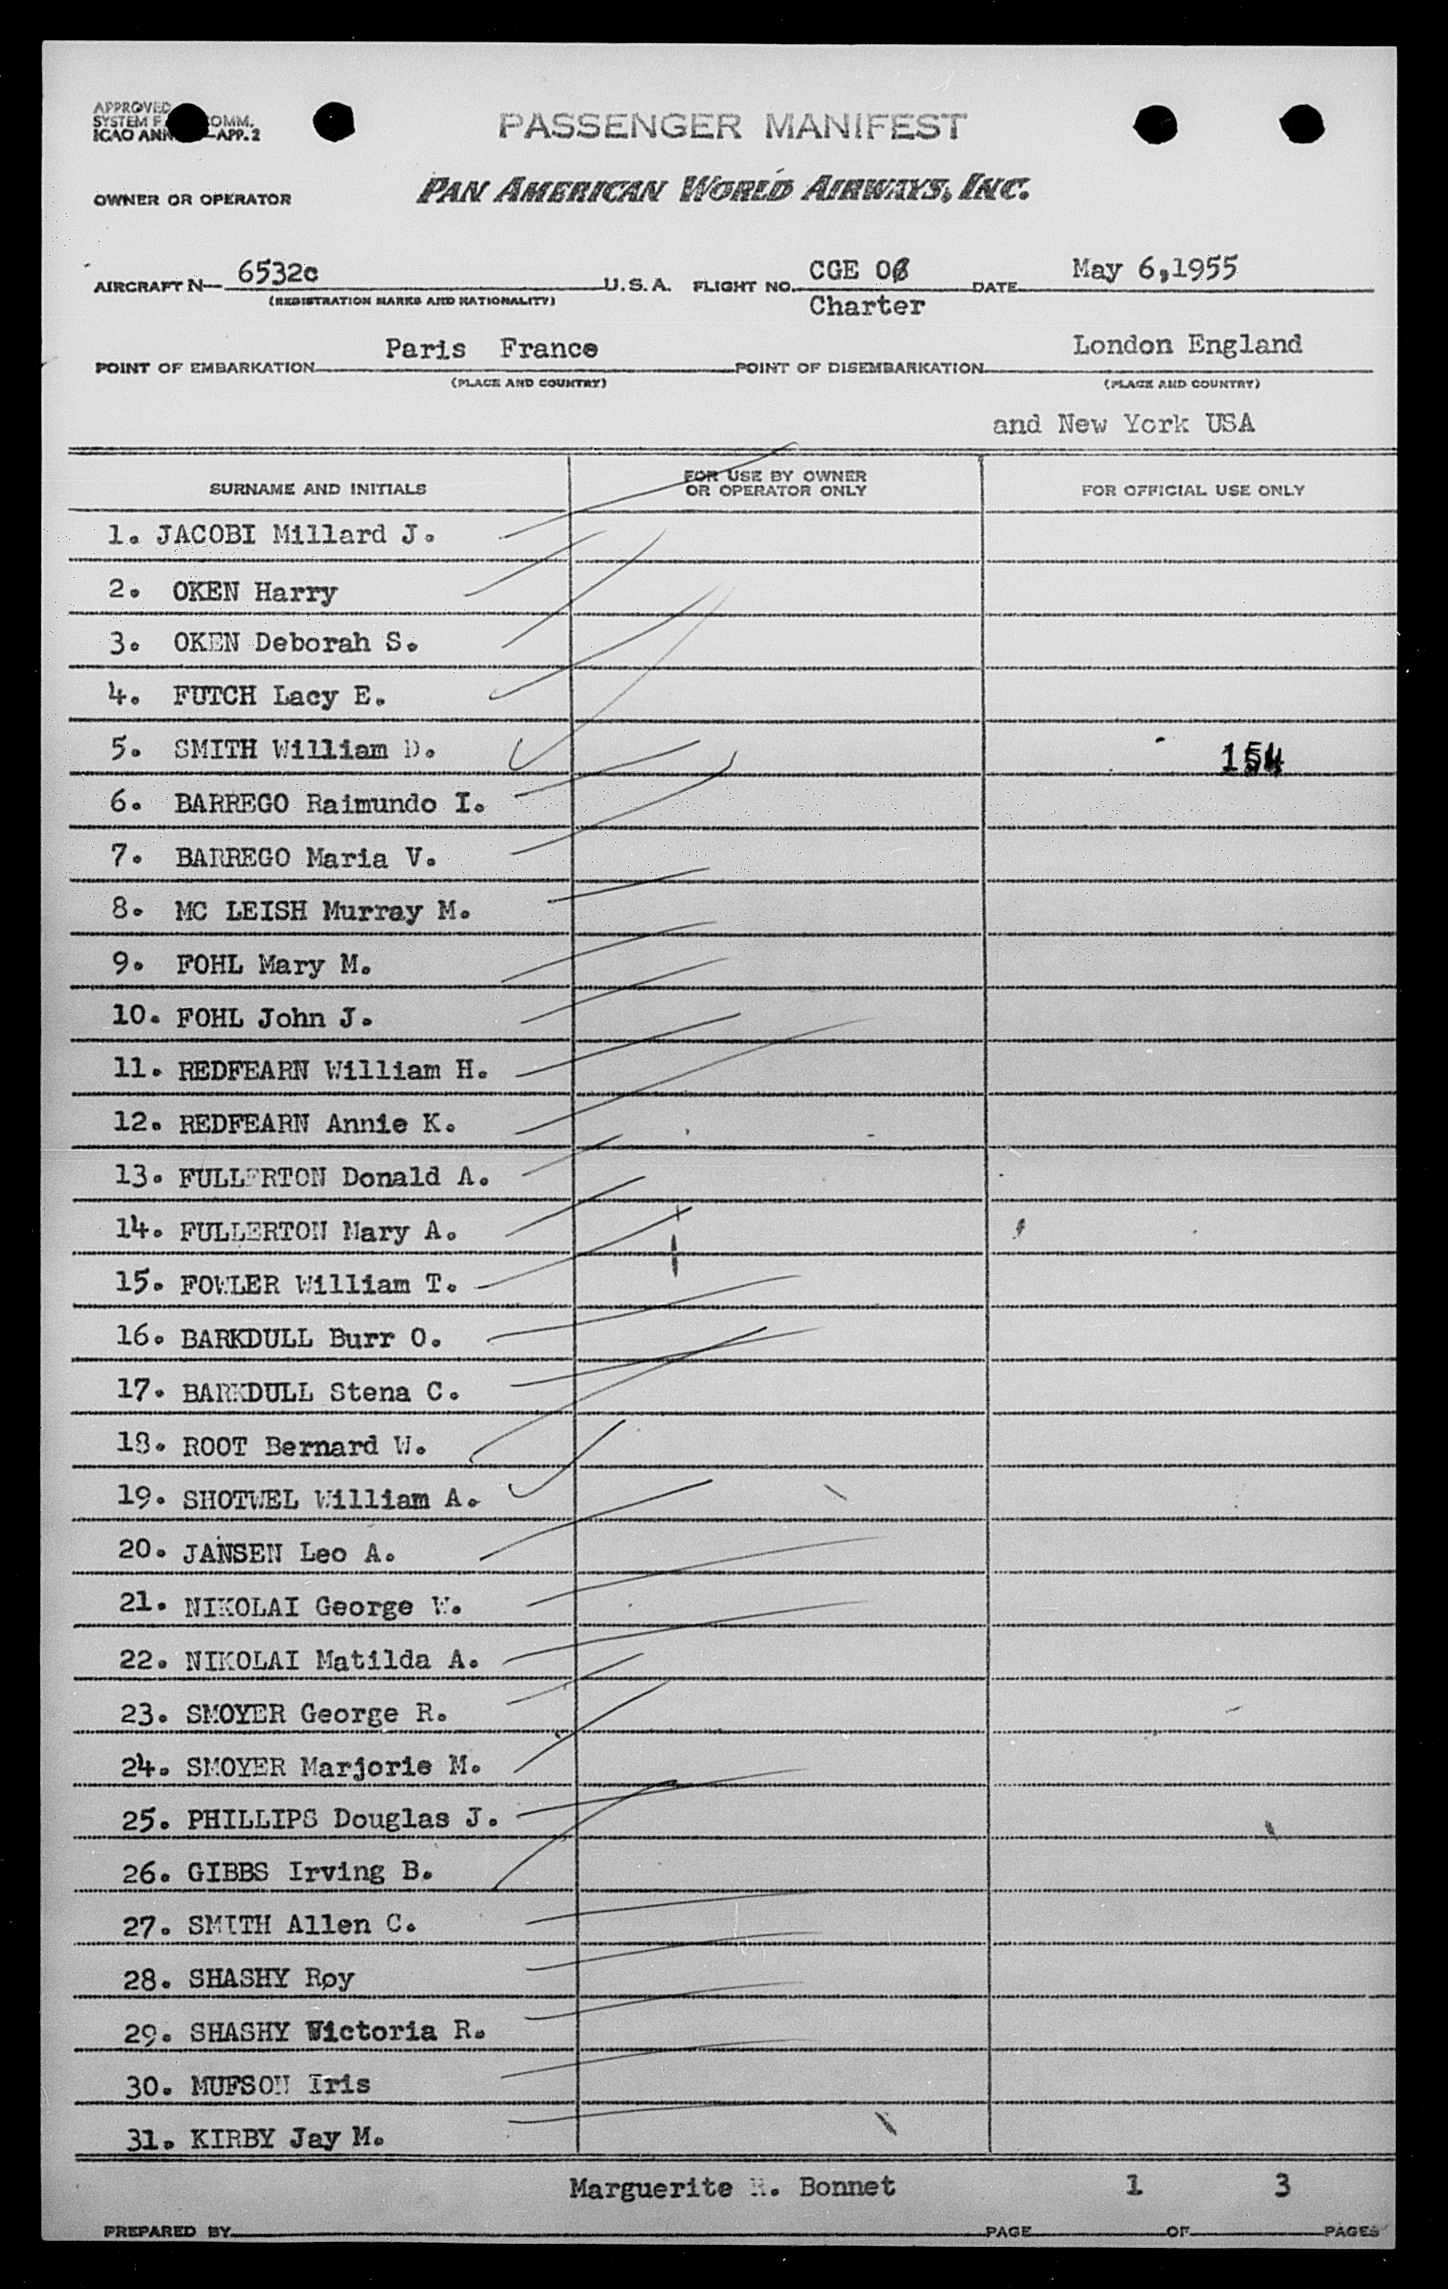 APPROVED
SYSTEM F COMM.
ICAO ANN —APP. 2
PASSENGER MANIFEST
OWNER OR OPERATOR
PAN AMERICAN WORLD AIRWAYS, INC.
AIRCRAFT N— 6532c U.S.A. FLIGHT NO. CGE 06 DATE May 6,1955
(REGISTRATION MARKS AND NATIONALITY)
Charter
POINT OF EMBARKATION Paris France POINT OF DISEMBARKATION London England
(PLACE AND COUNTRY) (PLACE AND COUNTRY)
and New York USA
SURNAME AND INITIALS FOR USE BY OWNER OR OPERATOR ONLY FOR OFFICIAL USE ONLY
1. JACOBI Millard J.
2. OKEN Harry
3. OKEN Deborah S.
4. FUTCH Lacy E.
5. SMITH William D. 154
6. BARREGO Raimundo I.
7. BARREGO Maria V.
8. MC LEISH Murray M.
9. FOHL Mary M.
10. FOHL John J.
11. REDFEARN William H.
12. REDFEARN Annie K.
13. FULLERTON Donald A.
14. FULLERTON Mary A.
15. FOWLER William T.
16. BARKDULL Burr O.
17. BARKDULL Stena C.
18. ROOT Bernard W.
19. SHOTWEL William A.
20. JANSEN Leo A.
21. NIKOLAI George W.
22. NIKOLAI Matilda A.
23. SMOYER George R.
24. SMOYER Marjorie M.
25. PHILLIPS Douglas J.
26. GIBBS Irving B.
27. SMITH Allen C.
28. SHASHY Roy
29. SHASHY Victoria R.
30. MUFSON Iris
31. KIRBY Jay M.
Marguerite R. Bonnet 1 3
PREPARED BY PAGE OF PAGES